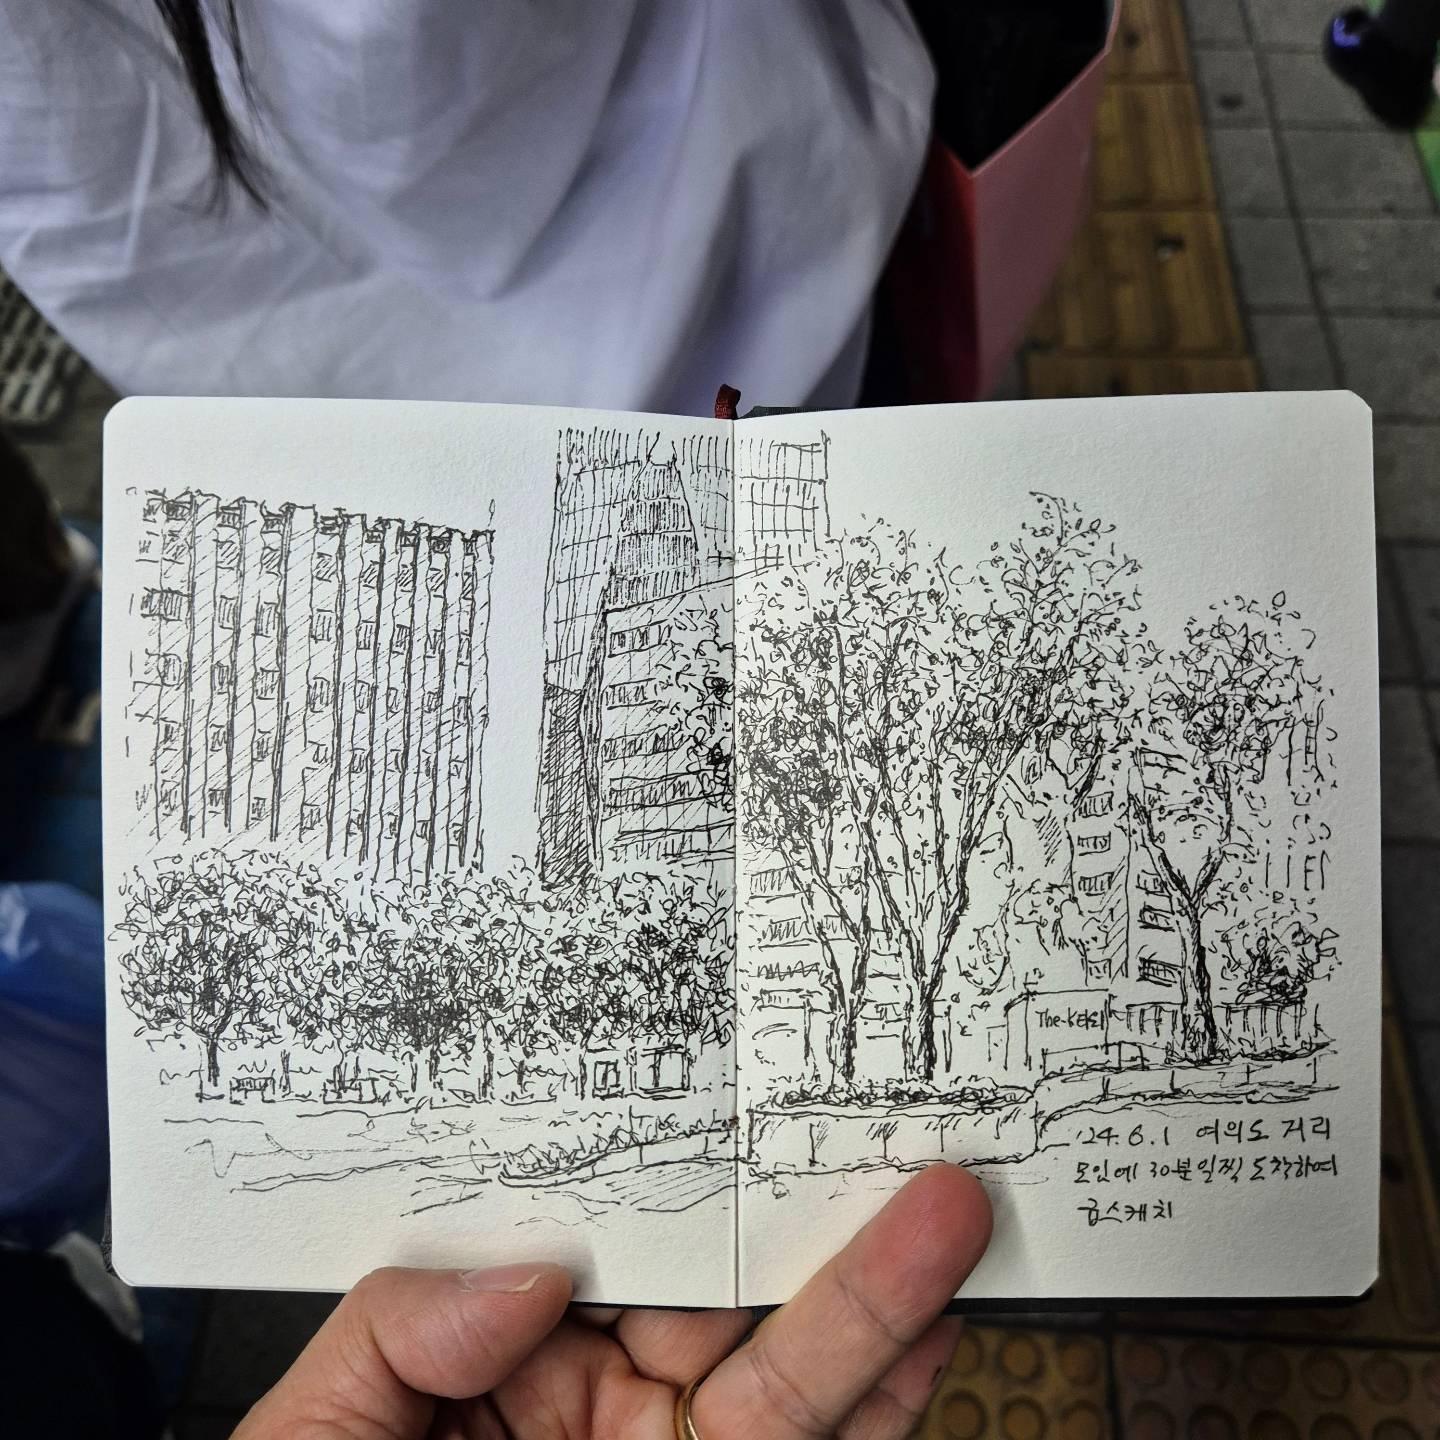 The-K타워
'24. 6. 1 여의도 거리
모임에 30분 일찍 도착하여
급스케치